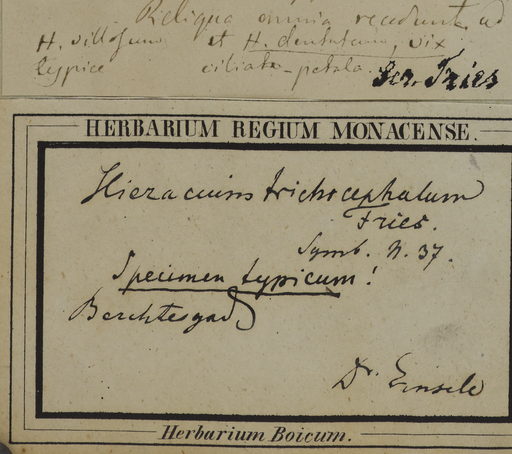 Reliqua omnia recedunt ad
H. villosum et H. dentatum, vix
typice ciliato-petala.
Scr. Fries
HERBARIUM REGIUM MONACENSE.
Hieracium trichocephalum
Fries.
Symb. N. 37.
Specimen typicum!
Berchtesgad
Dr. Einsele
Herbarium Boicum.